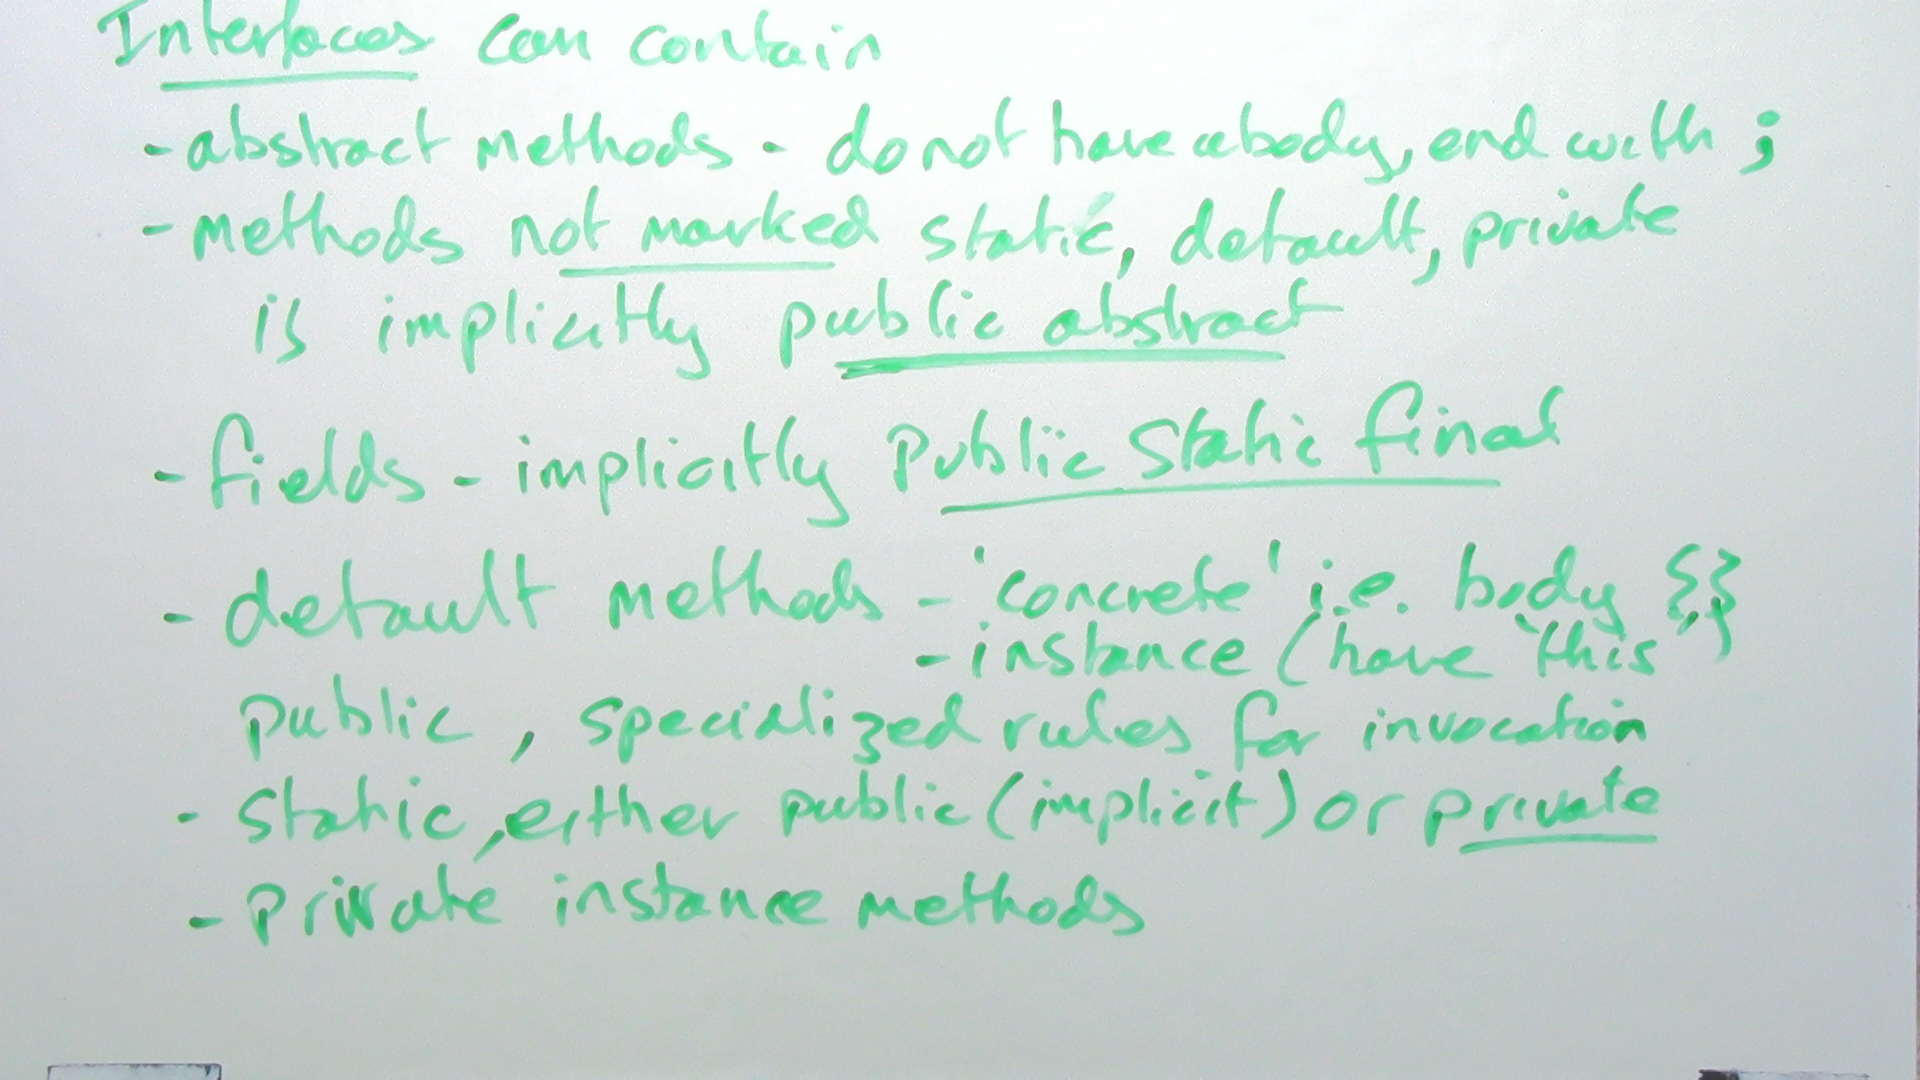 Interfaces can contain
- abstract methods - do not have a body, end with ;
- methods not marked static, default, private
is implicitly public abstract
- fields - implicitly Public Static final
- default methods - 'concrete' i.e. body {}
- instance (have "this")
public, specialized rules for invocation
- static, either public (implicit) or private
- private instance methods